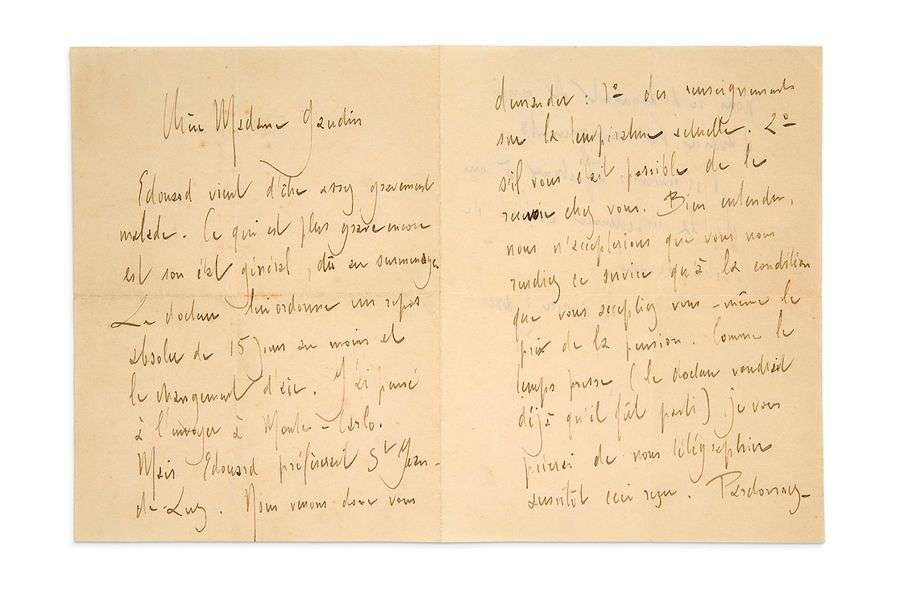 Chère Madame Gaudin
Edouard vient d'être assez gravement
malade. Ce qui est plus grave encore
est son état général, dû au surmenage.
Le docteur lui ordonne un repos
absolu de 15 jours au moins et
le changement d'air. J'ai pensé
à l'envoyer à Monte-Carlo.
Mais Edouard préfèrerait St Jean-
de-Luz. Nous venons donc vous
demander : 1º des renseignements
sur la température actuelle. 2º
s'il vous était possible de le
recevoir chez vous. Bien entendu,
nous n'accepterions que vous nous
rendiez ce service qu'à la condition
que vous acceptiez vous-même le
prix de la pension. Comme le
temps presse (le docteur voudrait
déjà qu'il fût parti) je vous
prierai de nous télégraphier
aussitôt ceci reçu. Pardonnez-